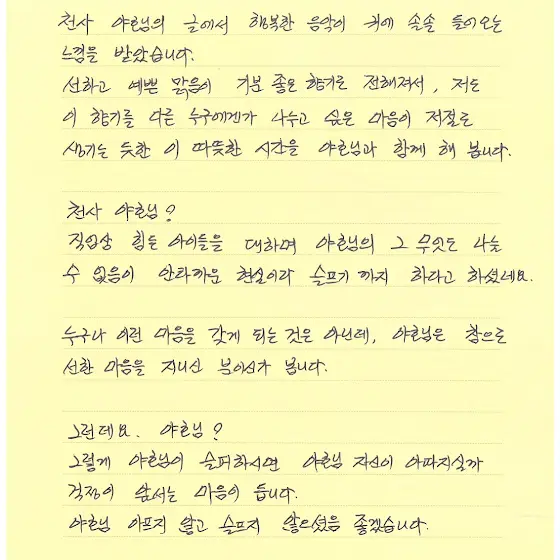 천사 야호님의 글에서 행복한 음악이 귀에 솔솔 들어오는
느낌을 받았습니다.
선하고 예쁜 맑음이 기분 좋은 향기로 전해져서, 저도
이 향기를 다른 누구에겐가 나누고 싶은 마음이 저절로
생기는 듯한 이 따뜻한 시간을 야호님과 함께 해 봅니다.
천사 야호님?
직업상 힘든 아이들을 대하며 야호님의 그 무엇도 나눌
수 없음이 안타까운 현실이라 슬프기까지 하다고 하셨네요.
누구나 이런 마음을 갖게 되는 것은 아닌데, 야호님은 참으로
선한 마음을 지니신 분이신가 봅니다.
그런데요. 야호님?
그렇게 야호님이 슬퍼하시면 야호님 자신이 아파지실까
걱정이 앞서는 마음이 듭니다.
야호님 아프지 않고 슬프지 않으셨음 좋겠습니다.